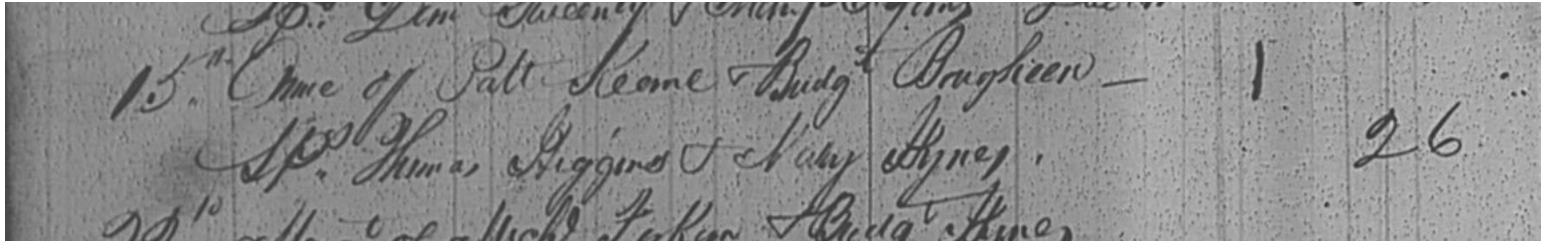 Sps. Sweeney &
15th Anne of Patt Keane & Bridgt Bragheen — 1
Sps. Thomas Higgins & Mary Hynes. 26
of Michl & Bridgt Hynes